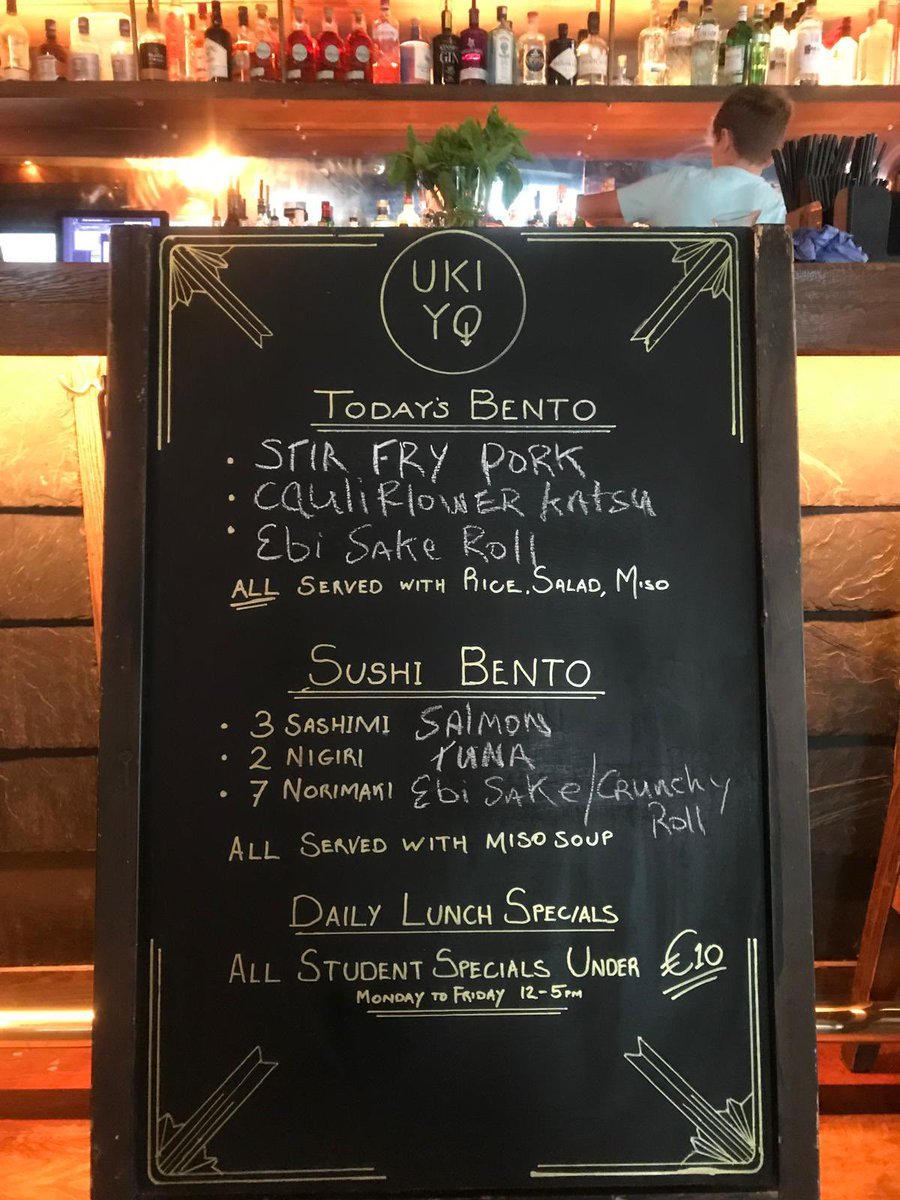 UKI
YO
TODAY'S BENTO
• STIR FRY PORK
• CAULIFLOWER KATSU
• Ebi SAKE ROLL
ALL SERVED WITH RICE, SALAD, MISO
SUSHI BENTO
• 3 SASHIMI SALMON
• 2 NIGIRI TUNA
• 7 NORIMAKI Ebi SAKE/CRUNCHY
Roll
ALL SERVED WITH MISO SOUP
DAILY LUNCH SPECIALS
ALL STUDENT SPECIALS UNDER €10
MONDAY TO FRIDAY 12-5PM